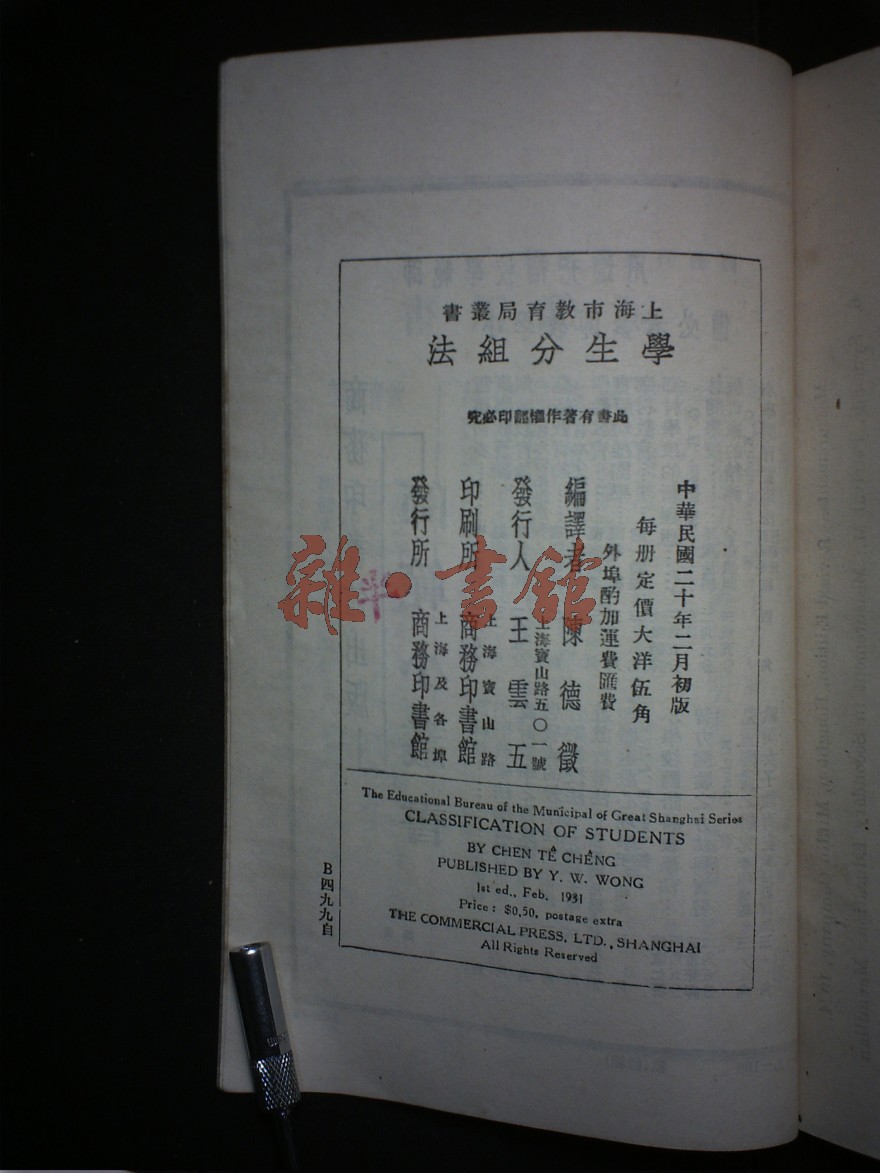 上海市教育局叢書
學生分組法
此書有著作權翻印必究
中華民國二十年二月初版
每册定價大洋伍角
外埠酌加運費匯費
編譯者 陳德徵
發行人 王雲五
上海寶山路五〇一號
印刷所 商務印書館
上海寶山路
發行所 商務印書館
上海及各埠
The Educational Bureau of the Municipal of Great Shanghai Series
CLASSIFICATION OF STUDENTS
BY CHEN TÊ CHÊNG
PUBLISHED BY Y. W. WONG
1st ed., Feb. 1931
Price: $0.50, postage extra
THE COMMERCIAL PRESS, LTD., SHANGHAI
All Rights Reserved
B四九九自
雜·書館